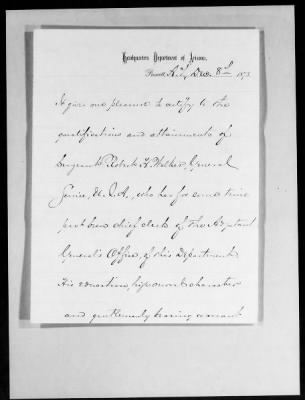 Headquarters Department of Arizona,
Prescott, A.T. Dec. 8th 1873
It gives me pleasure to certify to the
qualifications and attainments of
Sergeant Robert F. Walker, General
Service, U.S.A., who has for some time
past been chief clerk of the Adjutant
General's Office, of this Department.
His education, high moral character
and gentlemanly bearing warrant